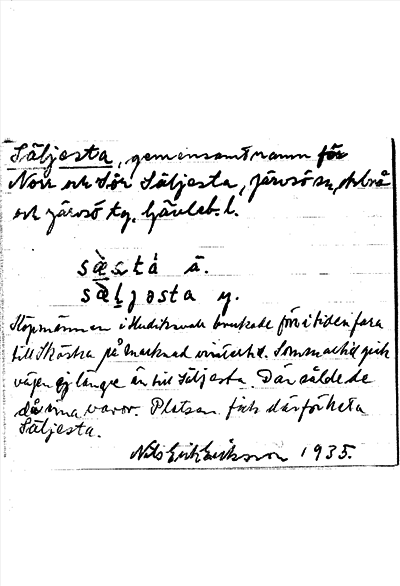 Säljesta, gemensamt namn för
Norr och Sör Säljesta, Järvsö sn, Arbrå
och Järvsö tg, Gävleb. l.
sæ̀stá ä.
sæ̀ljəsta y.
Köpmännen i Hudiksvall brukade förr i tiden fara
till Skästra på marknad vintertid. Sommartid gick
vägen ej längre än till Säljesta. Där sålde de
då sina varor. Platsen fick därför heta
Säljesta.
Nils Erik Eriksson 1935.